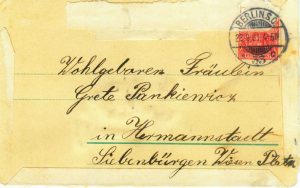 BERLIN S.
Wohlgeboren Fräulein
Grete Pankiewicz
in Hermannstadt
Siebenbürgen